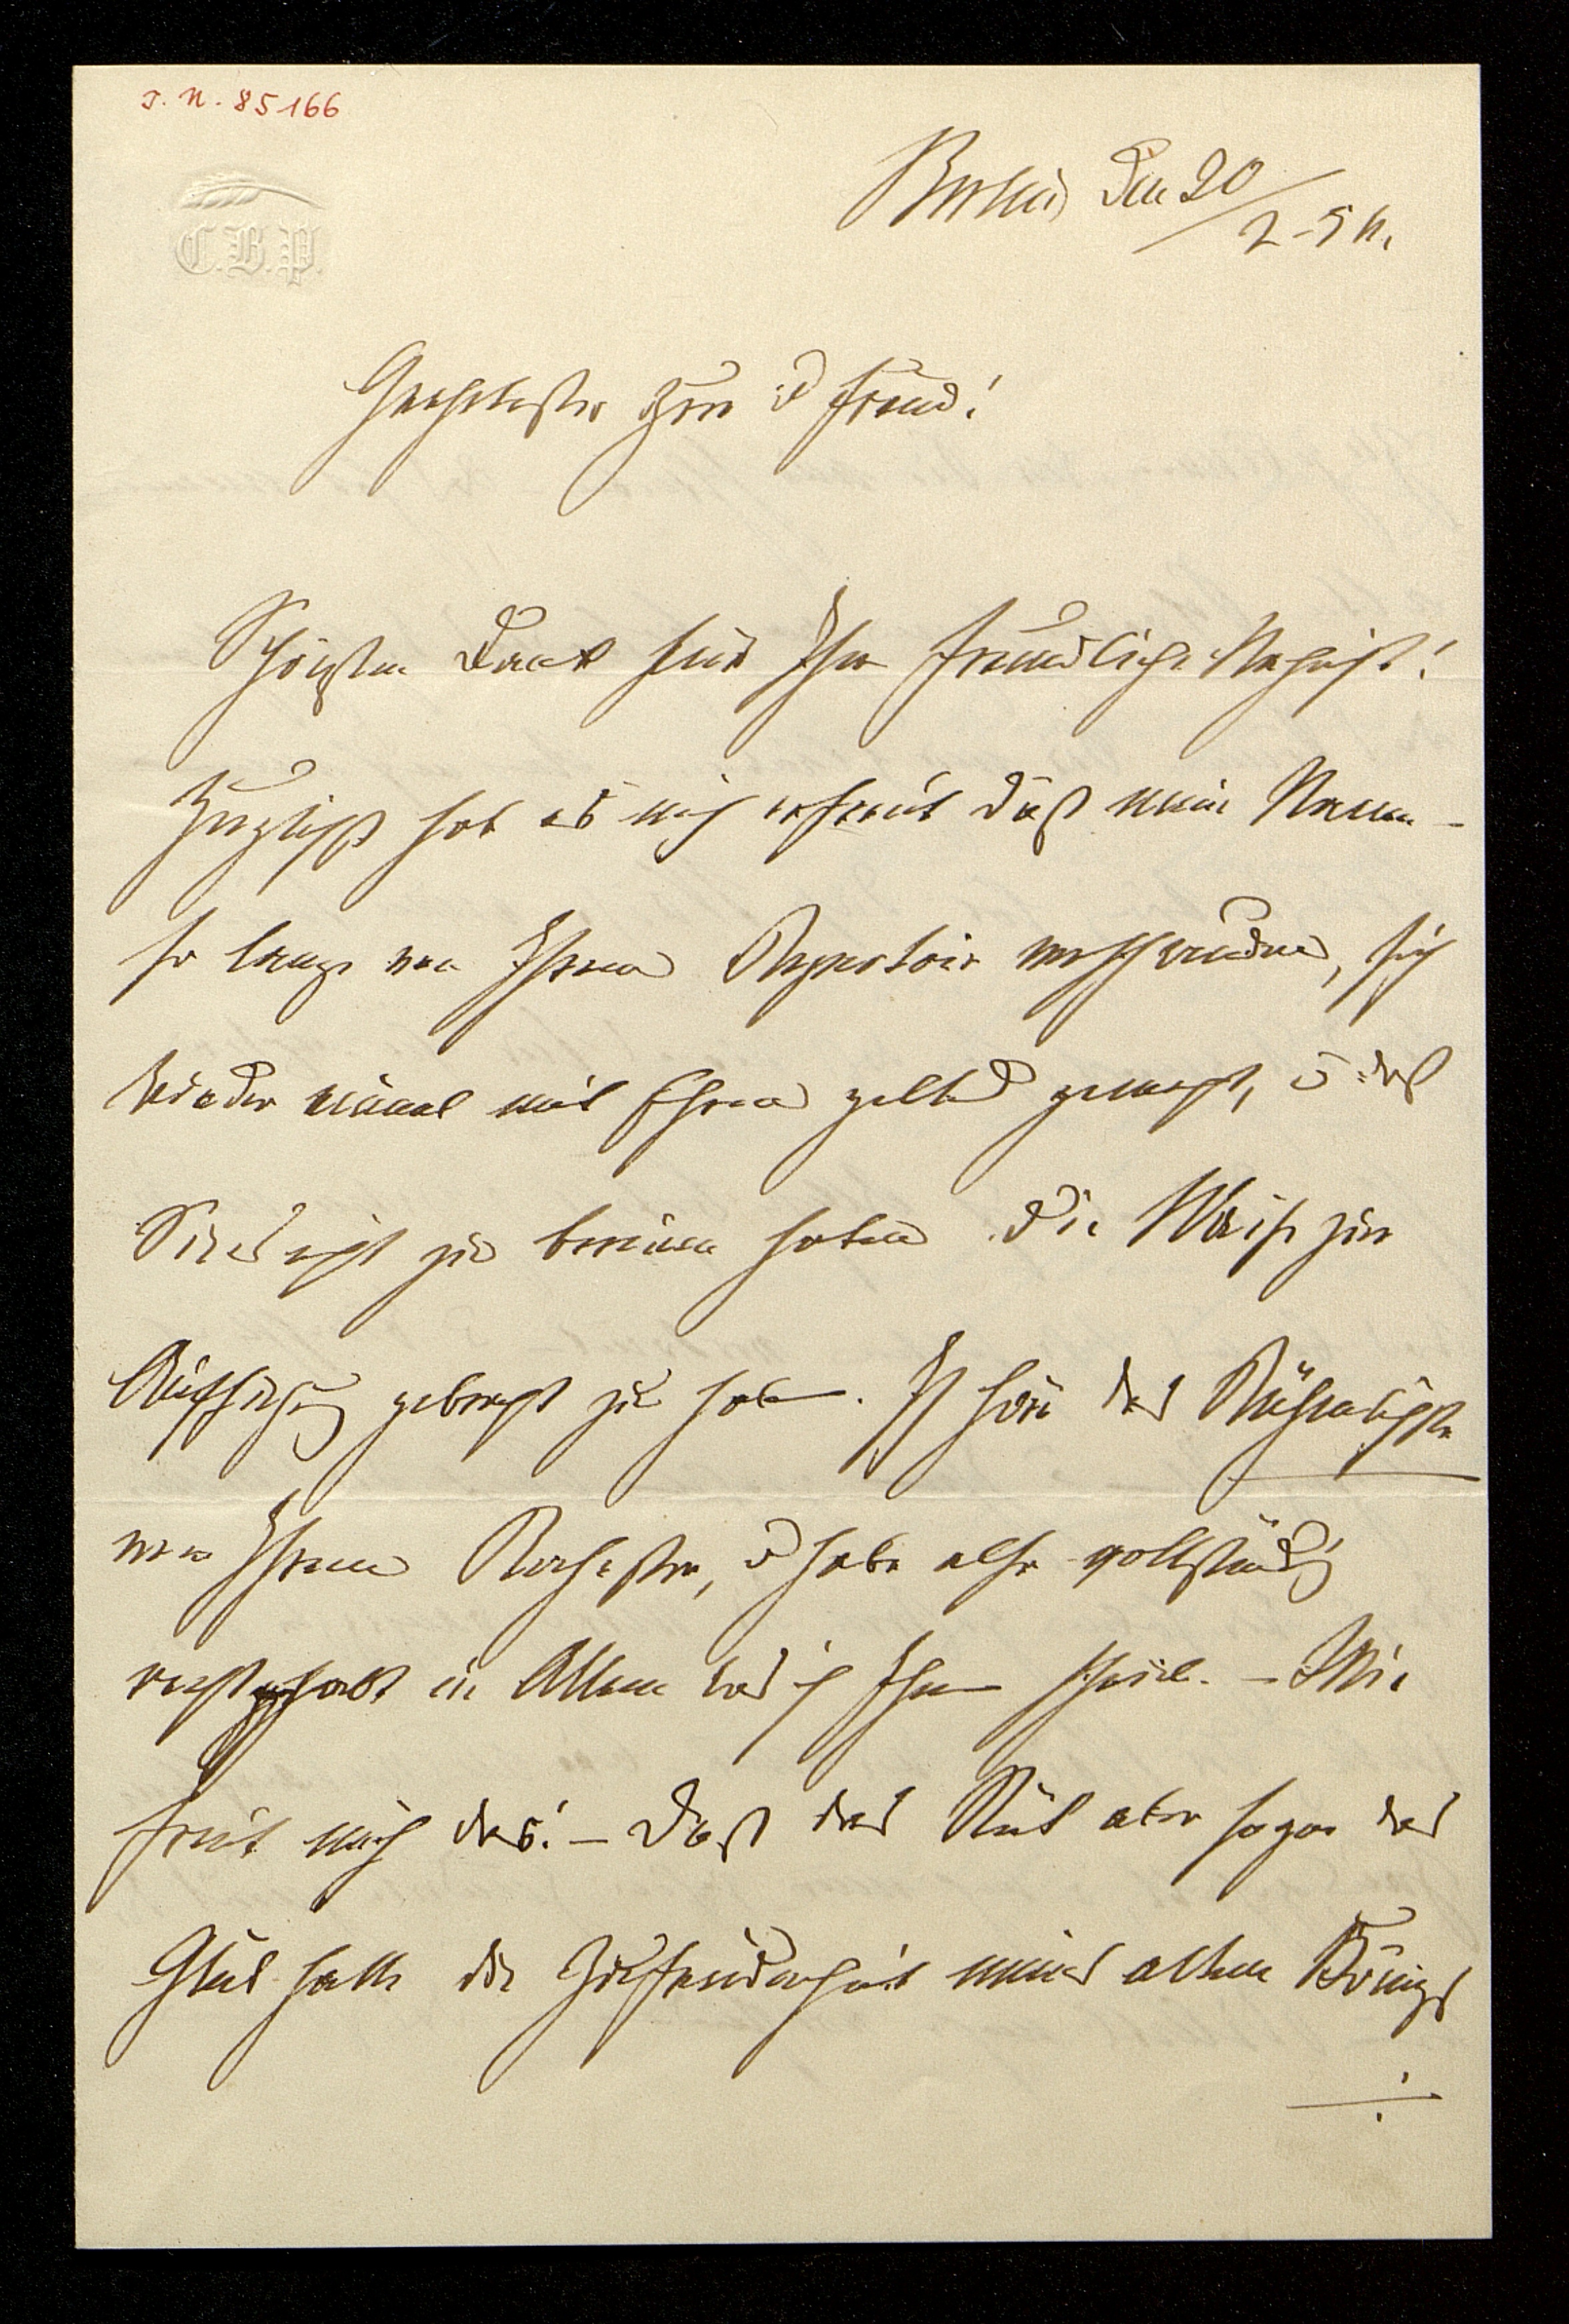 I. N. 85166
C.B.P.
Berlin den 20/2-54.
Geehrtester Herr u Freund!
Schönsten Dank für Ihre freundliche Nachricht!
Herzlichst hat es mich erfreut daß mein Name -
so lange von Ihrem Repertoir verschwunden, sich
wieder einmal mit Ehren geltend gemacht, u daß
Sie es nicht zu bereuen haben die Waise zur
Aufführung gebracht zu haben. Ich höre das Rühmlichste
von Ihrem Orchester, u habe also vollständig
recht gehabt in Allem was ich Ihnen schrieb. - Wie
freut mich das! - Daß das Stück aber sogar das
Glück hatte die Zufriedenheit meines alten Königs